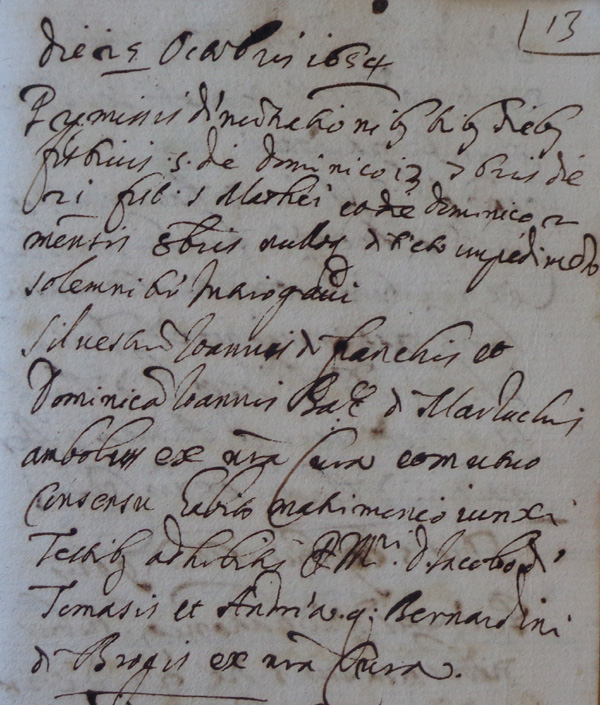 13
die 25 Octobris 1654
Premissis denuntiationibus tribus diebus
festivis s. die dominico 13 7bris die
21 fest. s Mathei eodē dominico 2
mensis 8bris nulloq detecto impedimēto
solemniter interrogavi
Silvestrū Ioannis d Franchis et
Dominicā Ioannis Batē d Martuchis
ambolus ex nrā Cura eo mutuo
Consensu habito matrimonio iunxi
Testib adhibitis Mri. d. Iacobo d'
Tomasis et Andrea q: Bernardini
di Brogis ex nrā Cura.